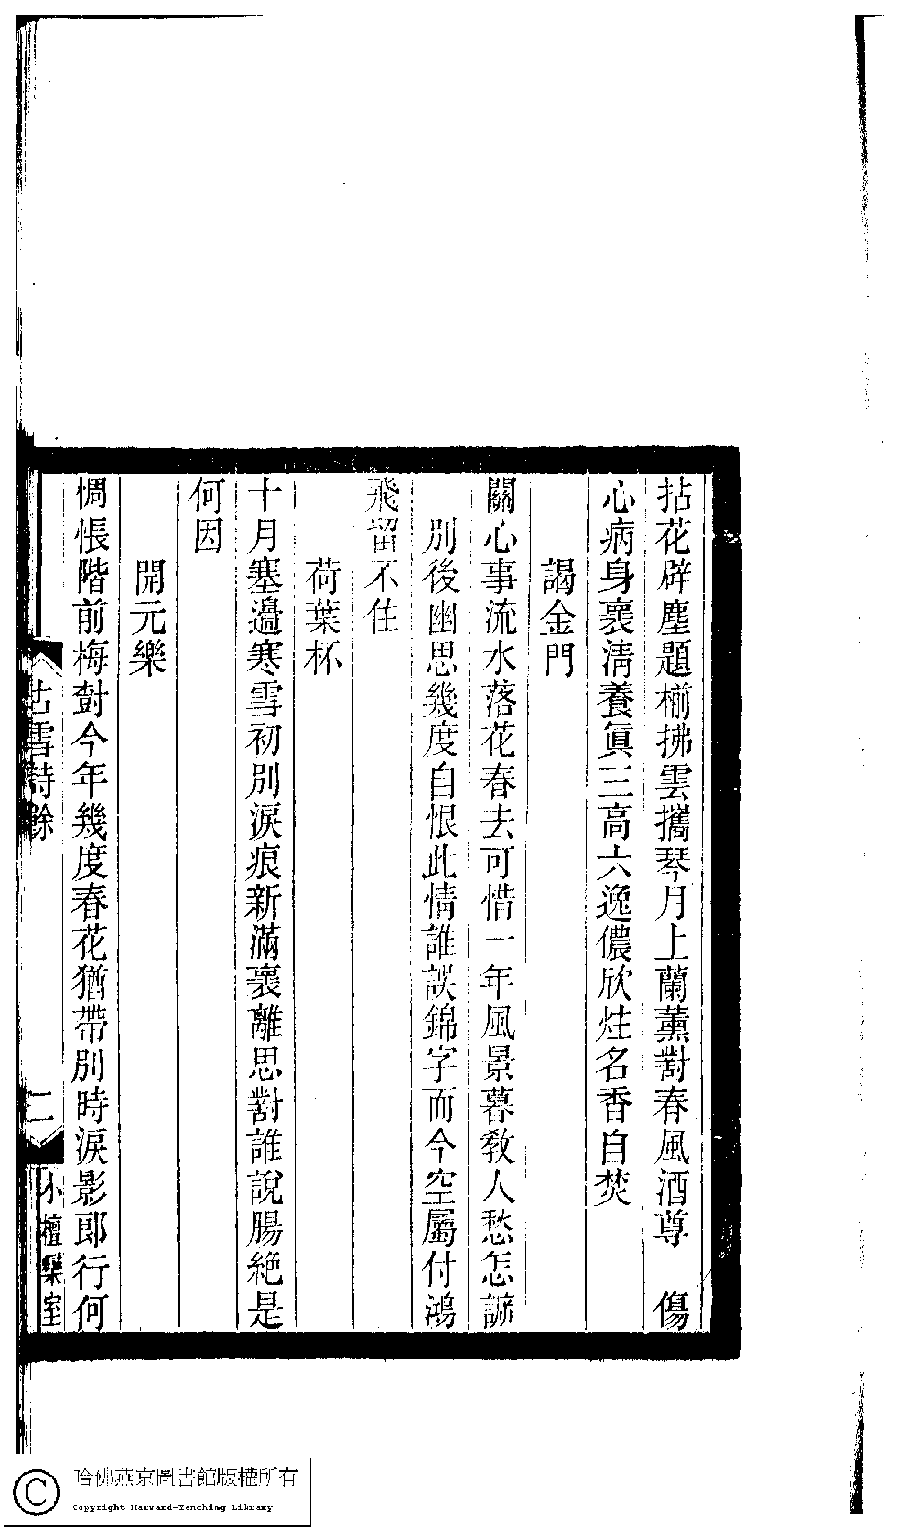 拈花辟塵題槲拂雲攜琴月上蘭薰對春風酒尊　傷
心病身裏清養眞三高六逸儂欣炷名香自焚
謁金門
關心事流水落花春去可惜一年風景暮敎人愁怎諦
別後幽思幾度自恨此情誰誤錦字而今空屬付鴻
飛留不住
荷葉杯
十月塞邉寒雪初別淚痕新滿裏離思對誰說腸絶是
何因
開元樂
惆悵階前梅對今年幾度春花猶帶別時淚影郎行何
古雪詩餘
二
小檀欒室
哈佛燕京圖書館版權所有
Copyright Harvard-Yenching Library